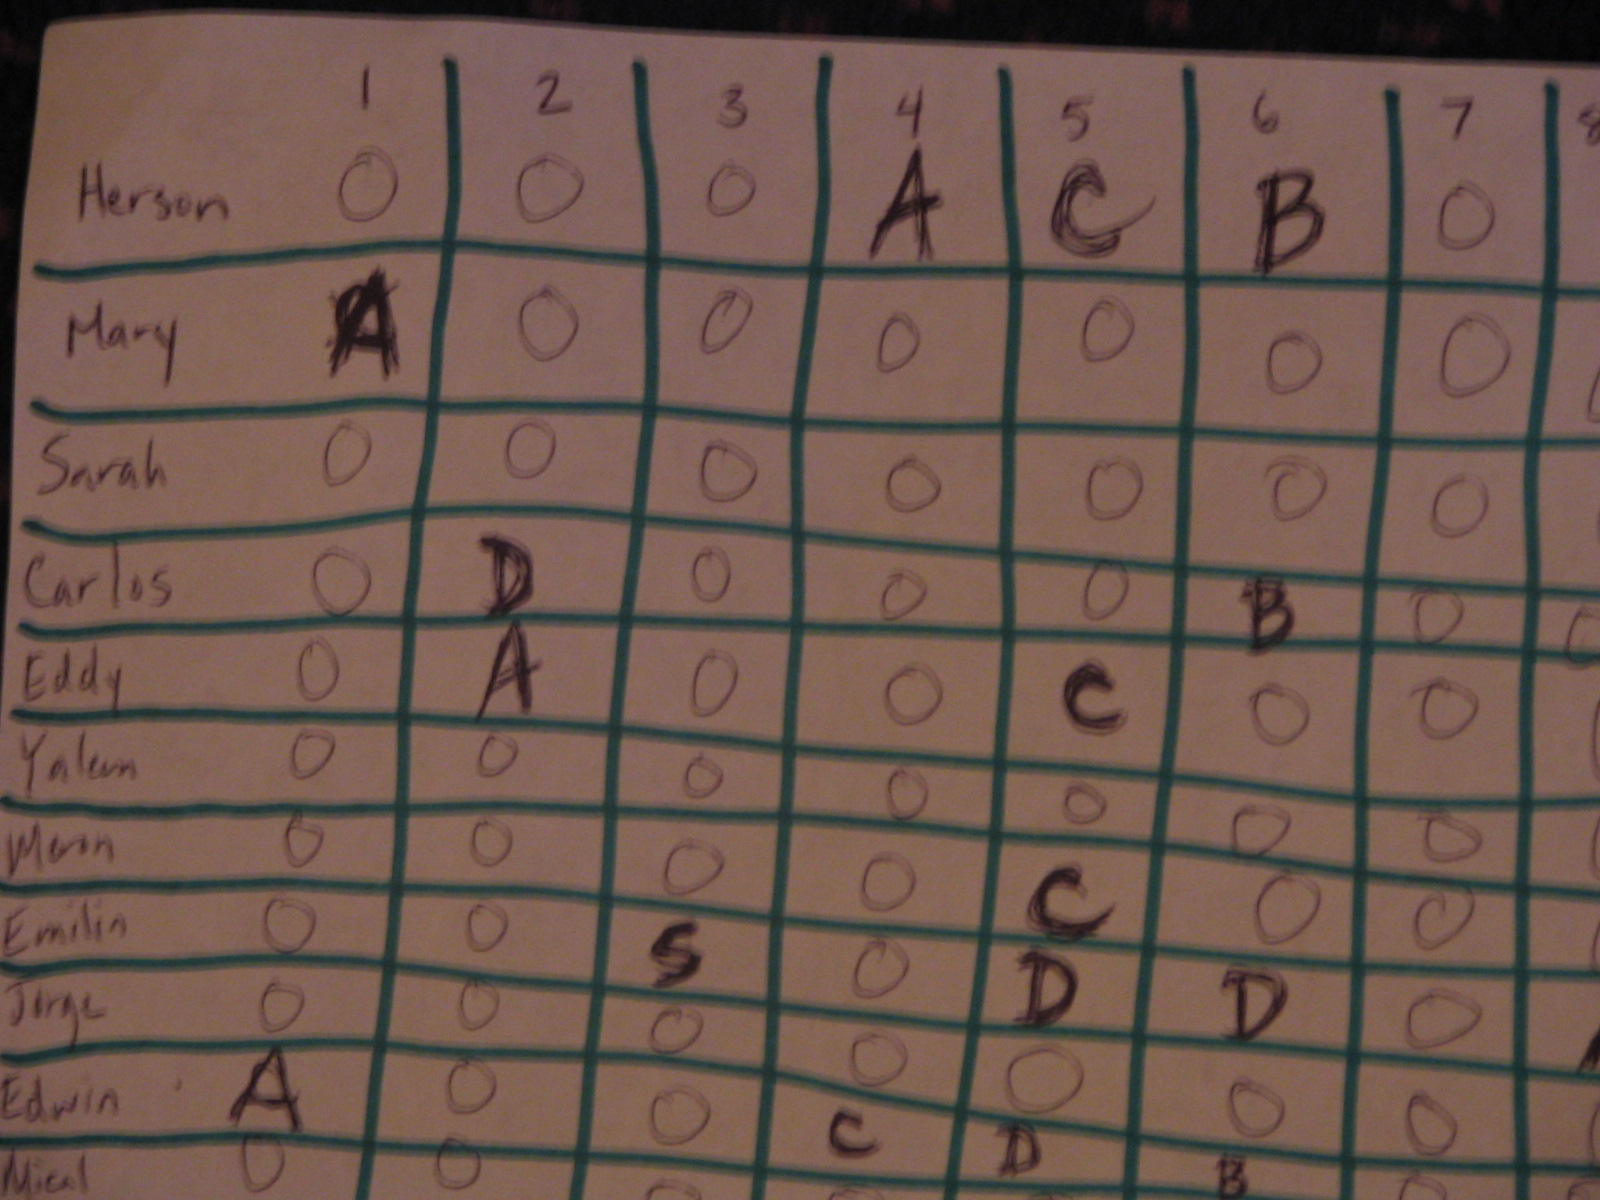 1 2 3 4 5 6 7 8
Herson O O O A C B O
Mary A O O O O O O
Sarah O O O O O O O
Carlos O D O O O B O
Eddy O A O O C O O
Yalem O O O O O O O
Meron O O O O C O O
Emilin O O S O D D O
Jorge O O O O O O O
Edwin A O O C D B
Mical O O